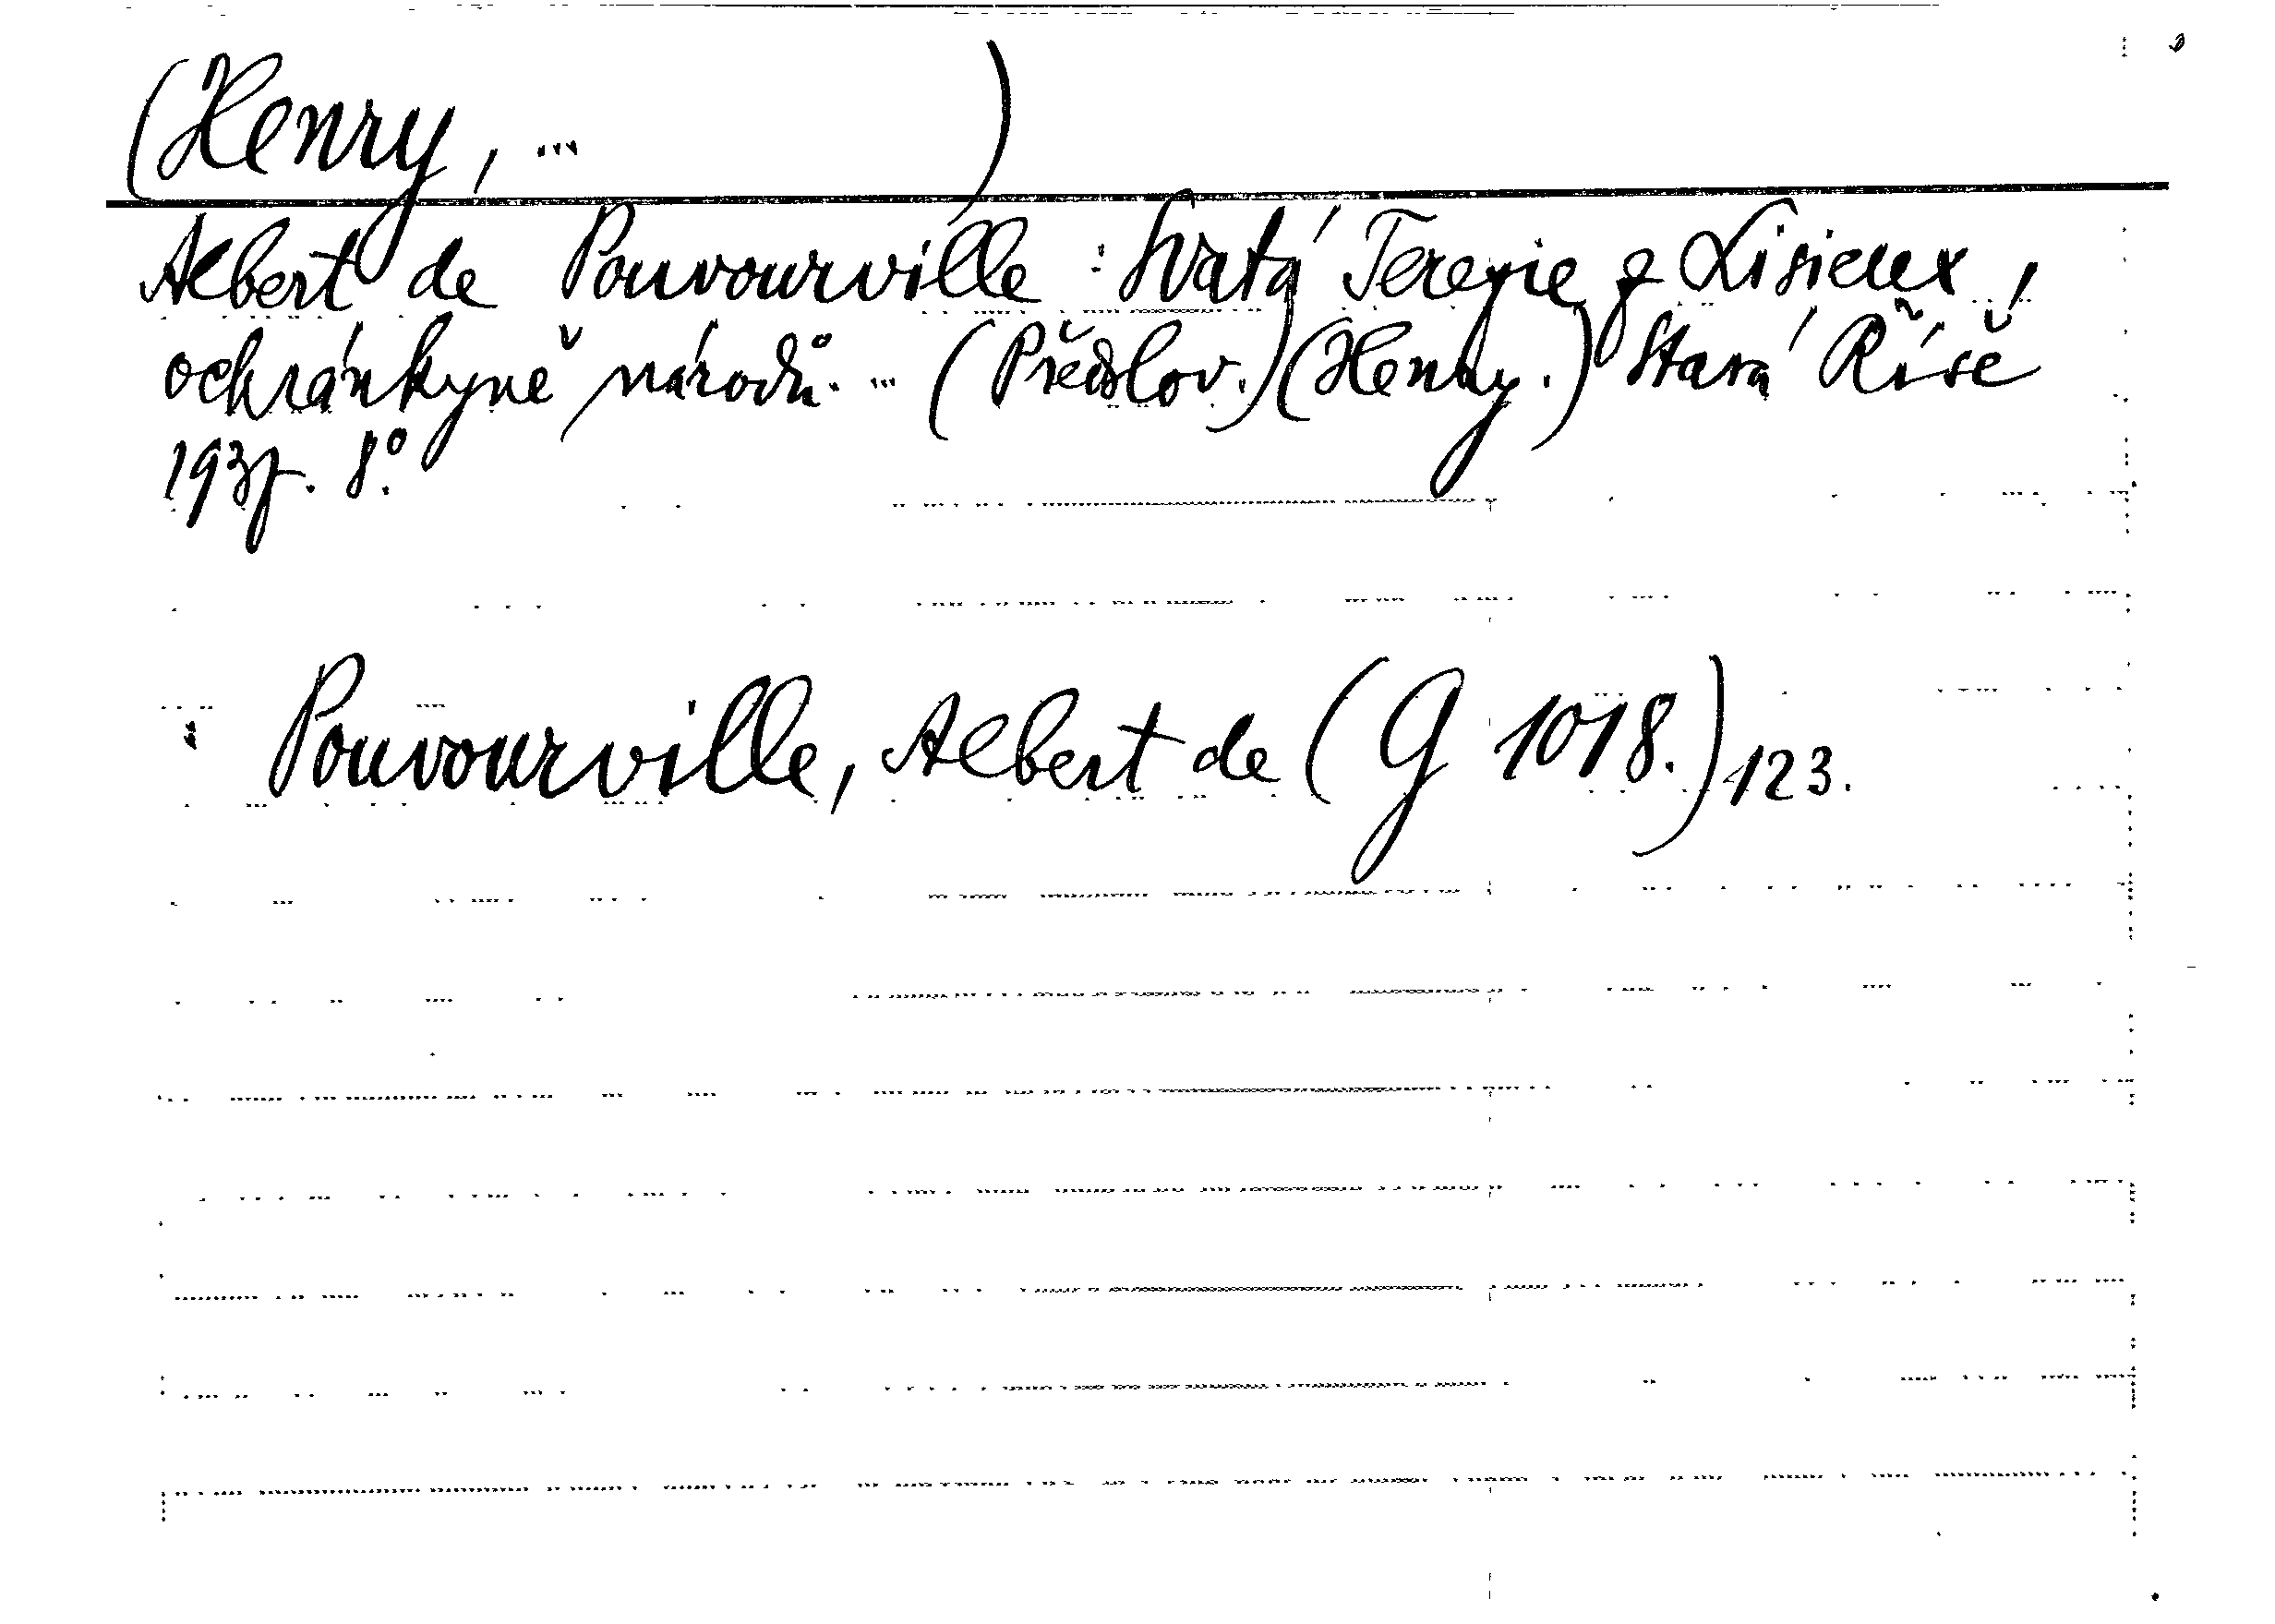 (Henry, ... )
Albert de Pouvourville : Svatá Terezie z Lisieux,
ochránkyně národů. ... (Předslov.) (Henry.) Stará Říše
1937. 8°.
Pouvourville, Albert de (G 1018.) 123.